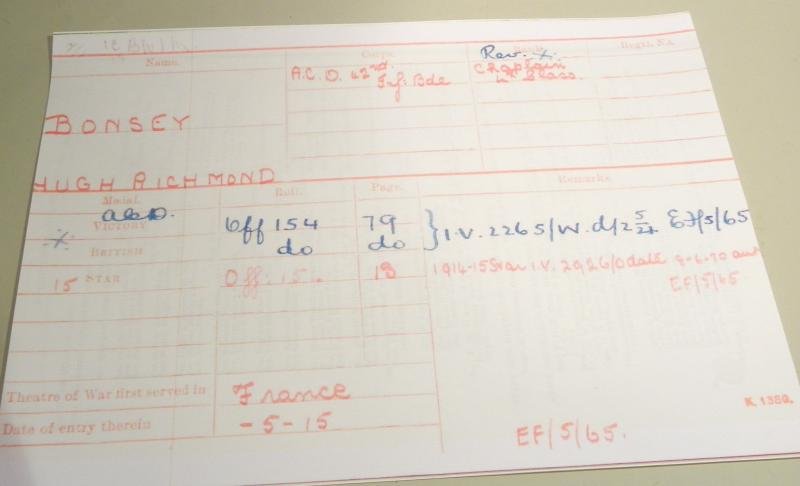 Name.
Corps.
Rank.
Regtl. No.
Rev. X.
A.C.D. 42nd.
Inf: Bde
Chaplain
4th Class.
BONSEY
HUGH RICHMOND
Medal.
Roll.
Page.
Remarks.
VICTORY
Off 154
79
} I.V. 2265/W. d/2 5/21 EF/5/65
X
BRITISH
do
do
15 STAR
Off: 15
18
1914-15 Star I.V. 2926/D date
EF/5/65
Theatre of War first served in
France
K. 1380.
Date of entry therein
- 5 - 15
EF/5/65.